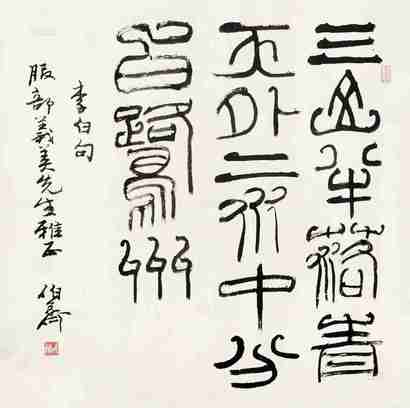 三山半落青
天外二水中分
白鹭洲
李白句
服部義美先生雅正
伯齋